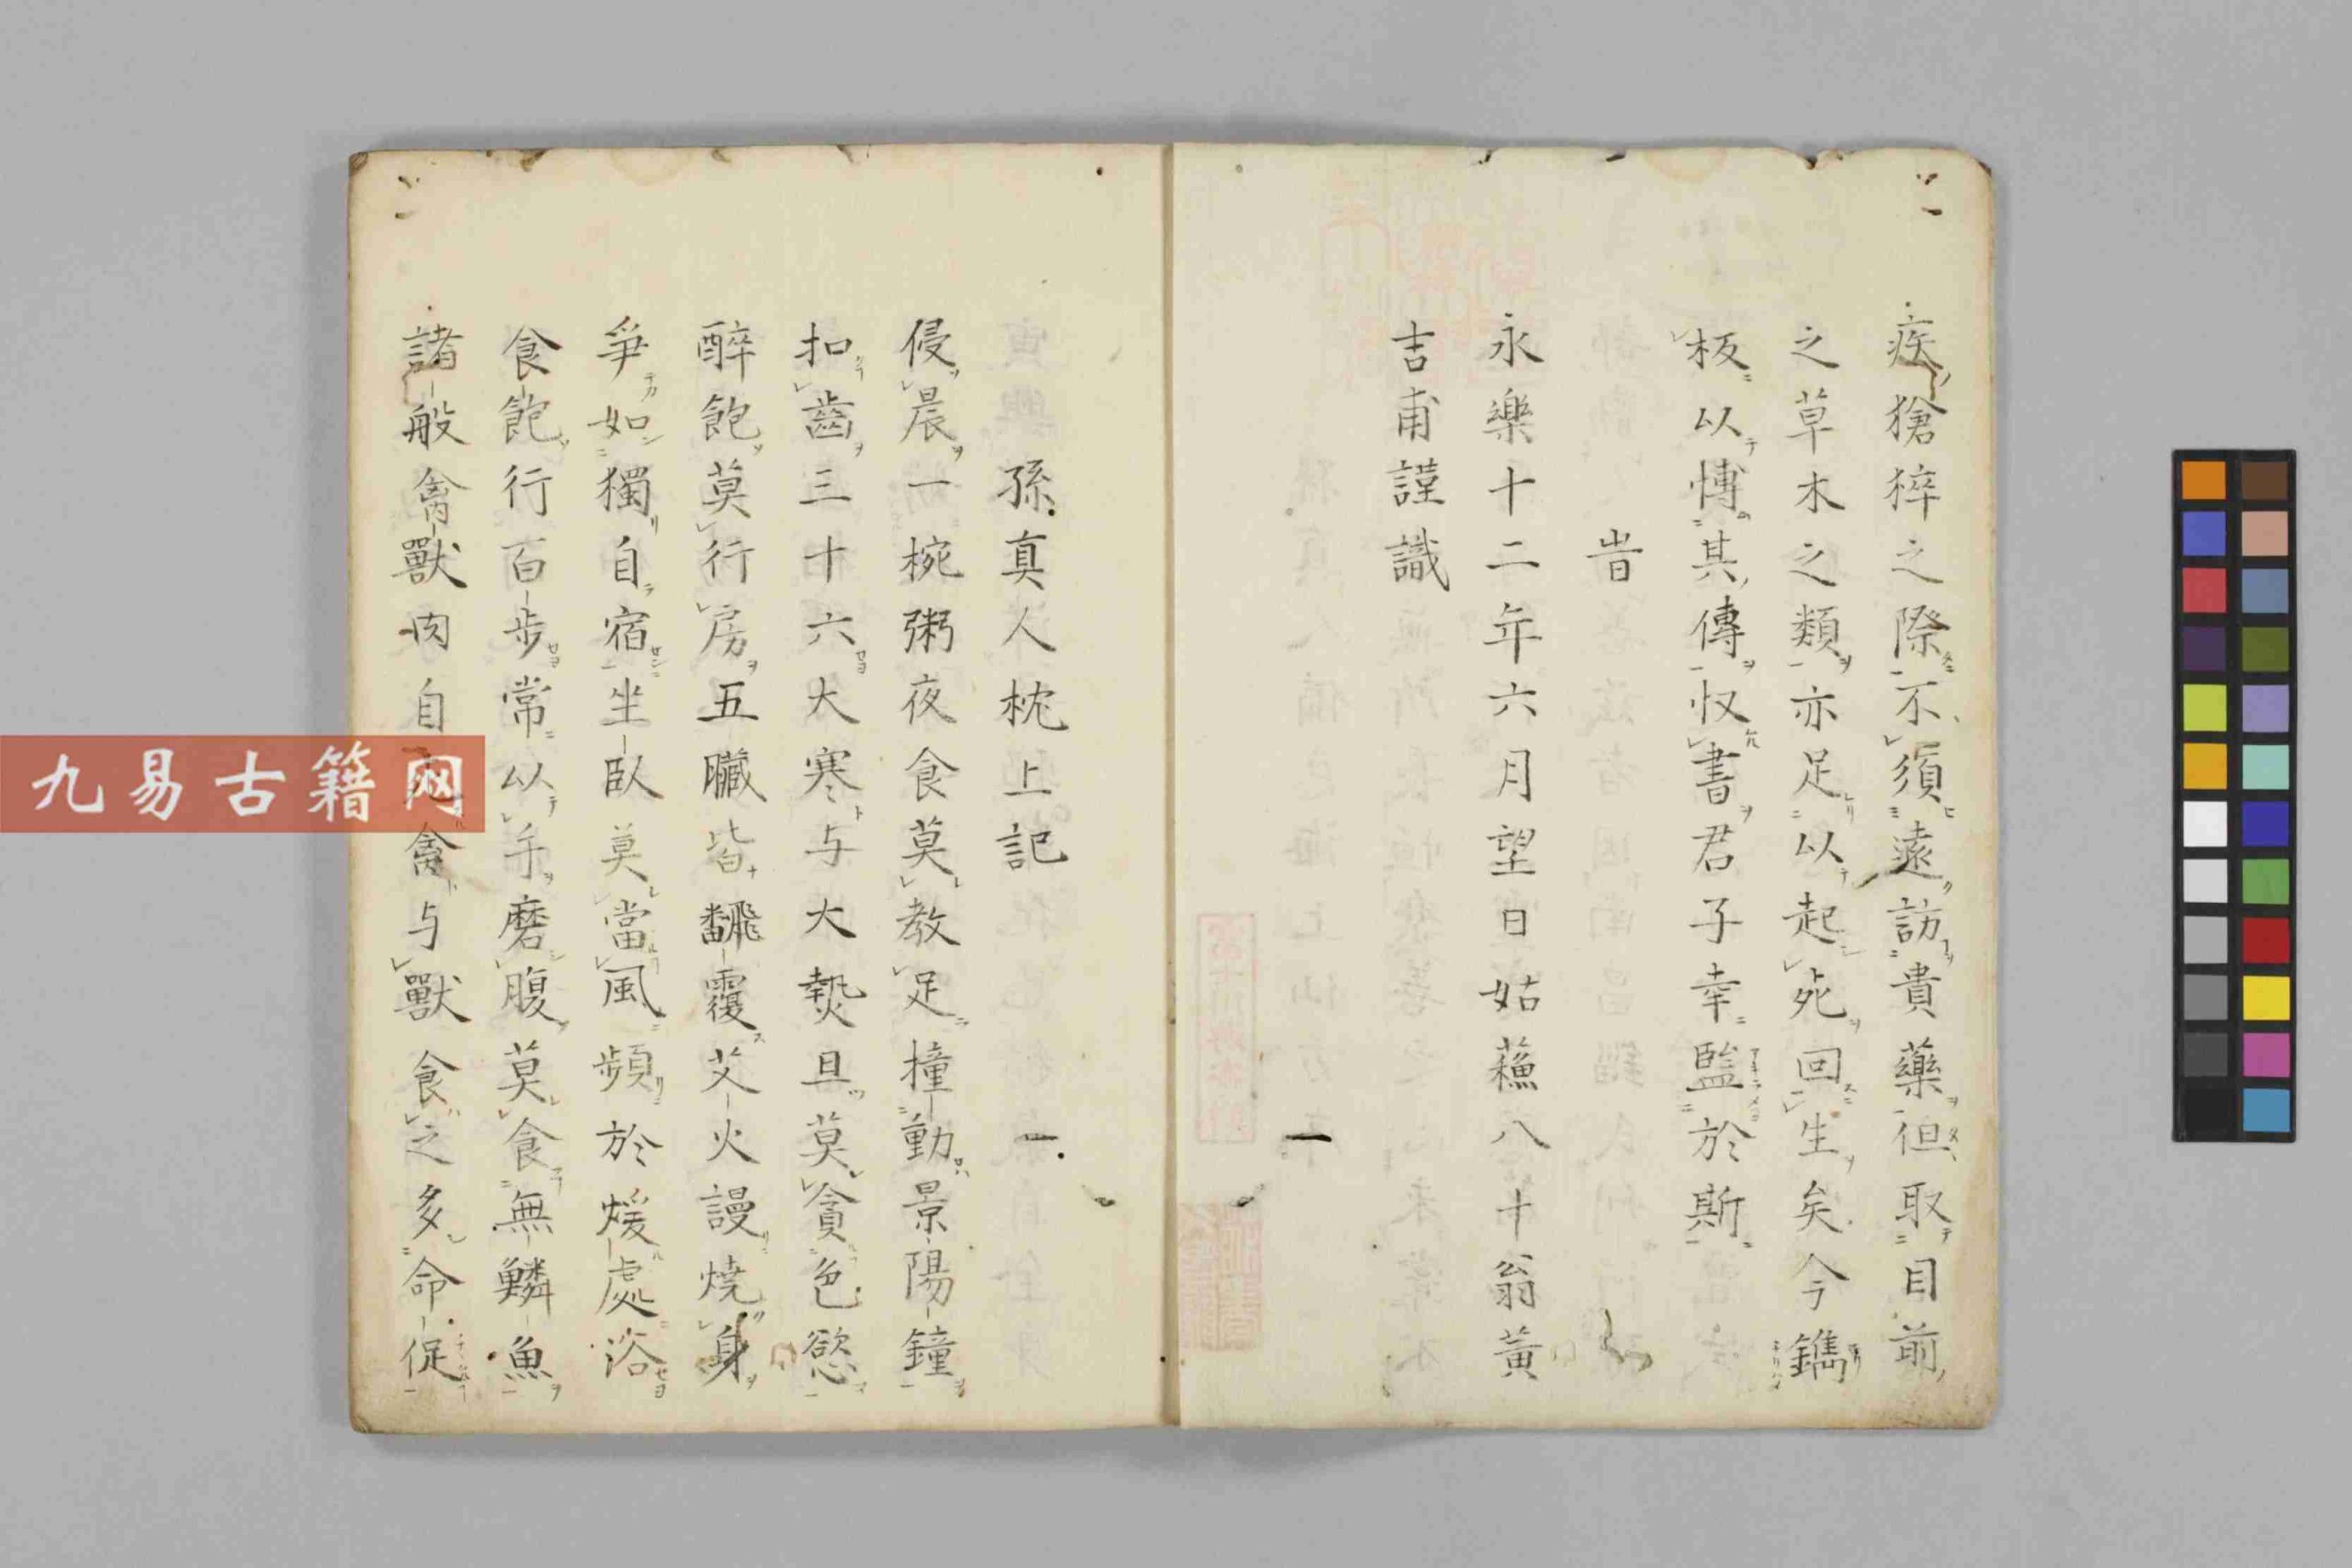 疾猹猝之際不須遠訪貴藥但取目前
之草木之類亦足以起死回生矣今鐫
板以博其傳收書君子幸監於斯
旹
永樂十二年六月望日姑蘓八十翁黃
吉甫謹識
孫真人枕上記
侵晨一椀粥夜食莫教足撞動景陽鐘
扣齒三十六大寒与大熱且莫貪色慾
醉飽莫行房五臟皆飜覆艾火謾燒身
爭如獨自宿坐臥莫當風頻於煖處浴
食飽行百步常以手磨腹莫食無鱗魚
諸般禽獸肉自禽与獸食之多命促
九易古籍网